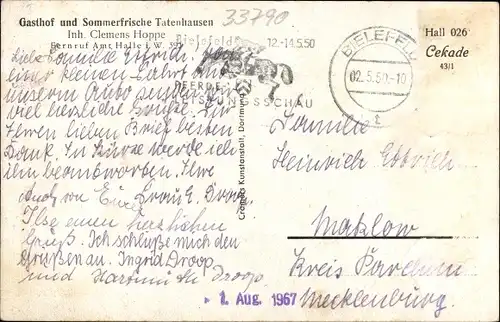 Gasthof und Sommerfrische Tatenhausen
Inh. Clemens Hoppe
Fernruf Amt Halle i. W. 593
33790
Bielefeld 12.-14.5.50
PFERDE-
LEISTUNGSSCHAU
BIELEFELD
02.5.50.-10
Hall 026
Cekade
43/1
Liebe Familie Ettrich. Von
einer kleinen Fahrt mit
unserm Auto senden wir
viel herzliche Grüße. Für
Ihren lieben Brief besten
Dank. In Kürze werde ich
ihn beantworten. Ihre
Frau E. Droop.
Auch von
Ilse einen herzlichen
Gruß. Ich schließe mich den
Grüßen an. Ingrid Droop
und Hartmut Droop
Cramers Kunstanstalt, Dortmund
Familie
Heinrich Ettrich
Matzlow
Kreis Parchim
Mecklenburg.
1. Aug. 1967